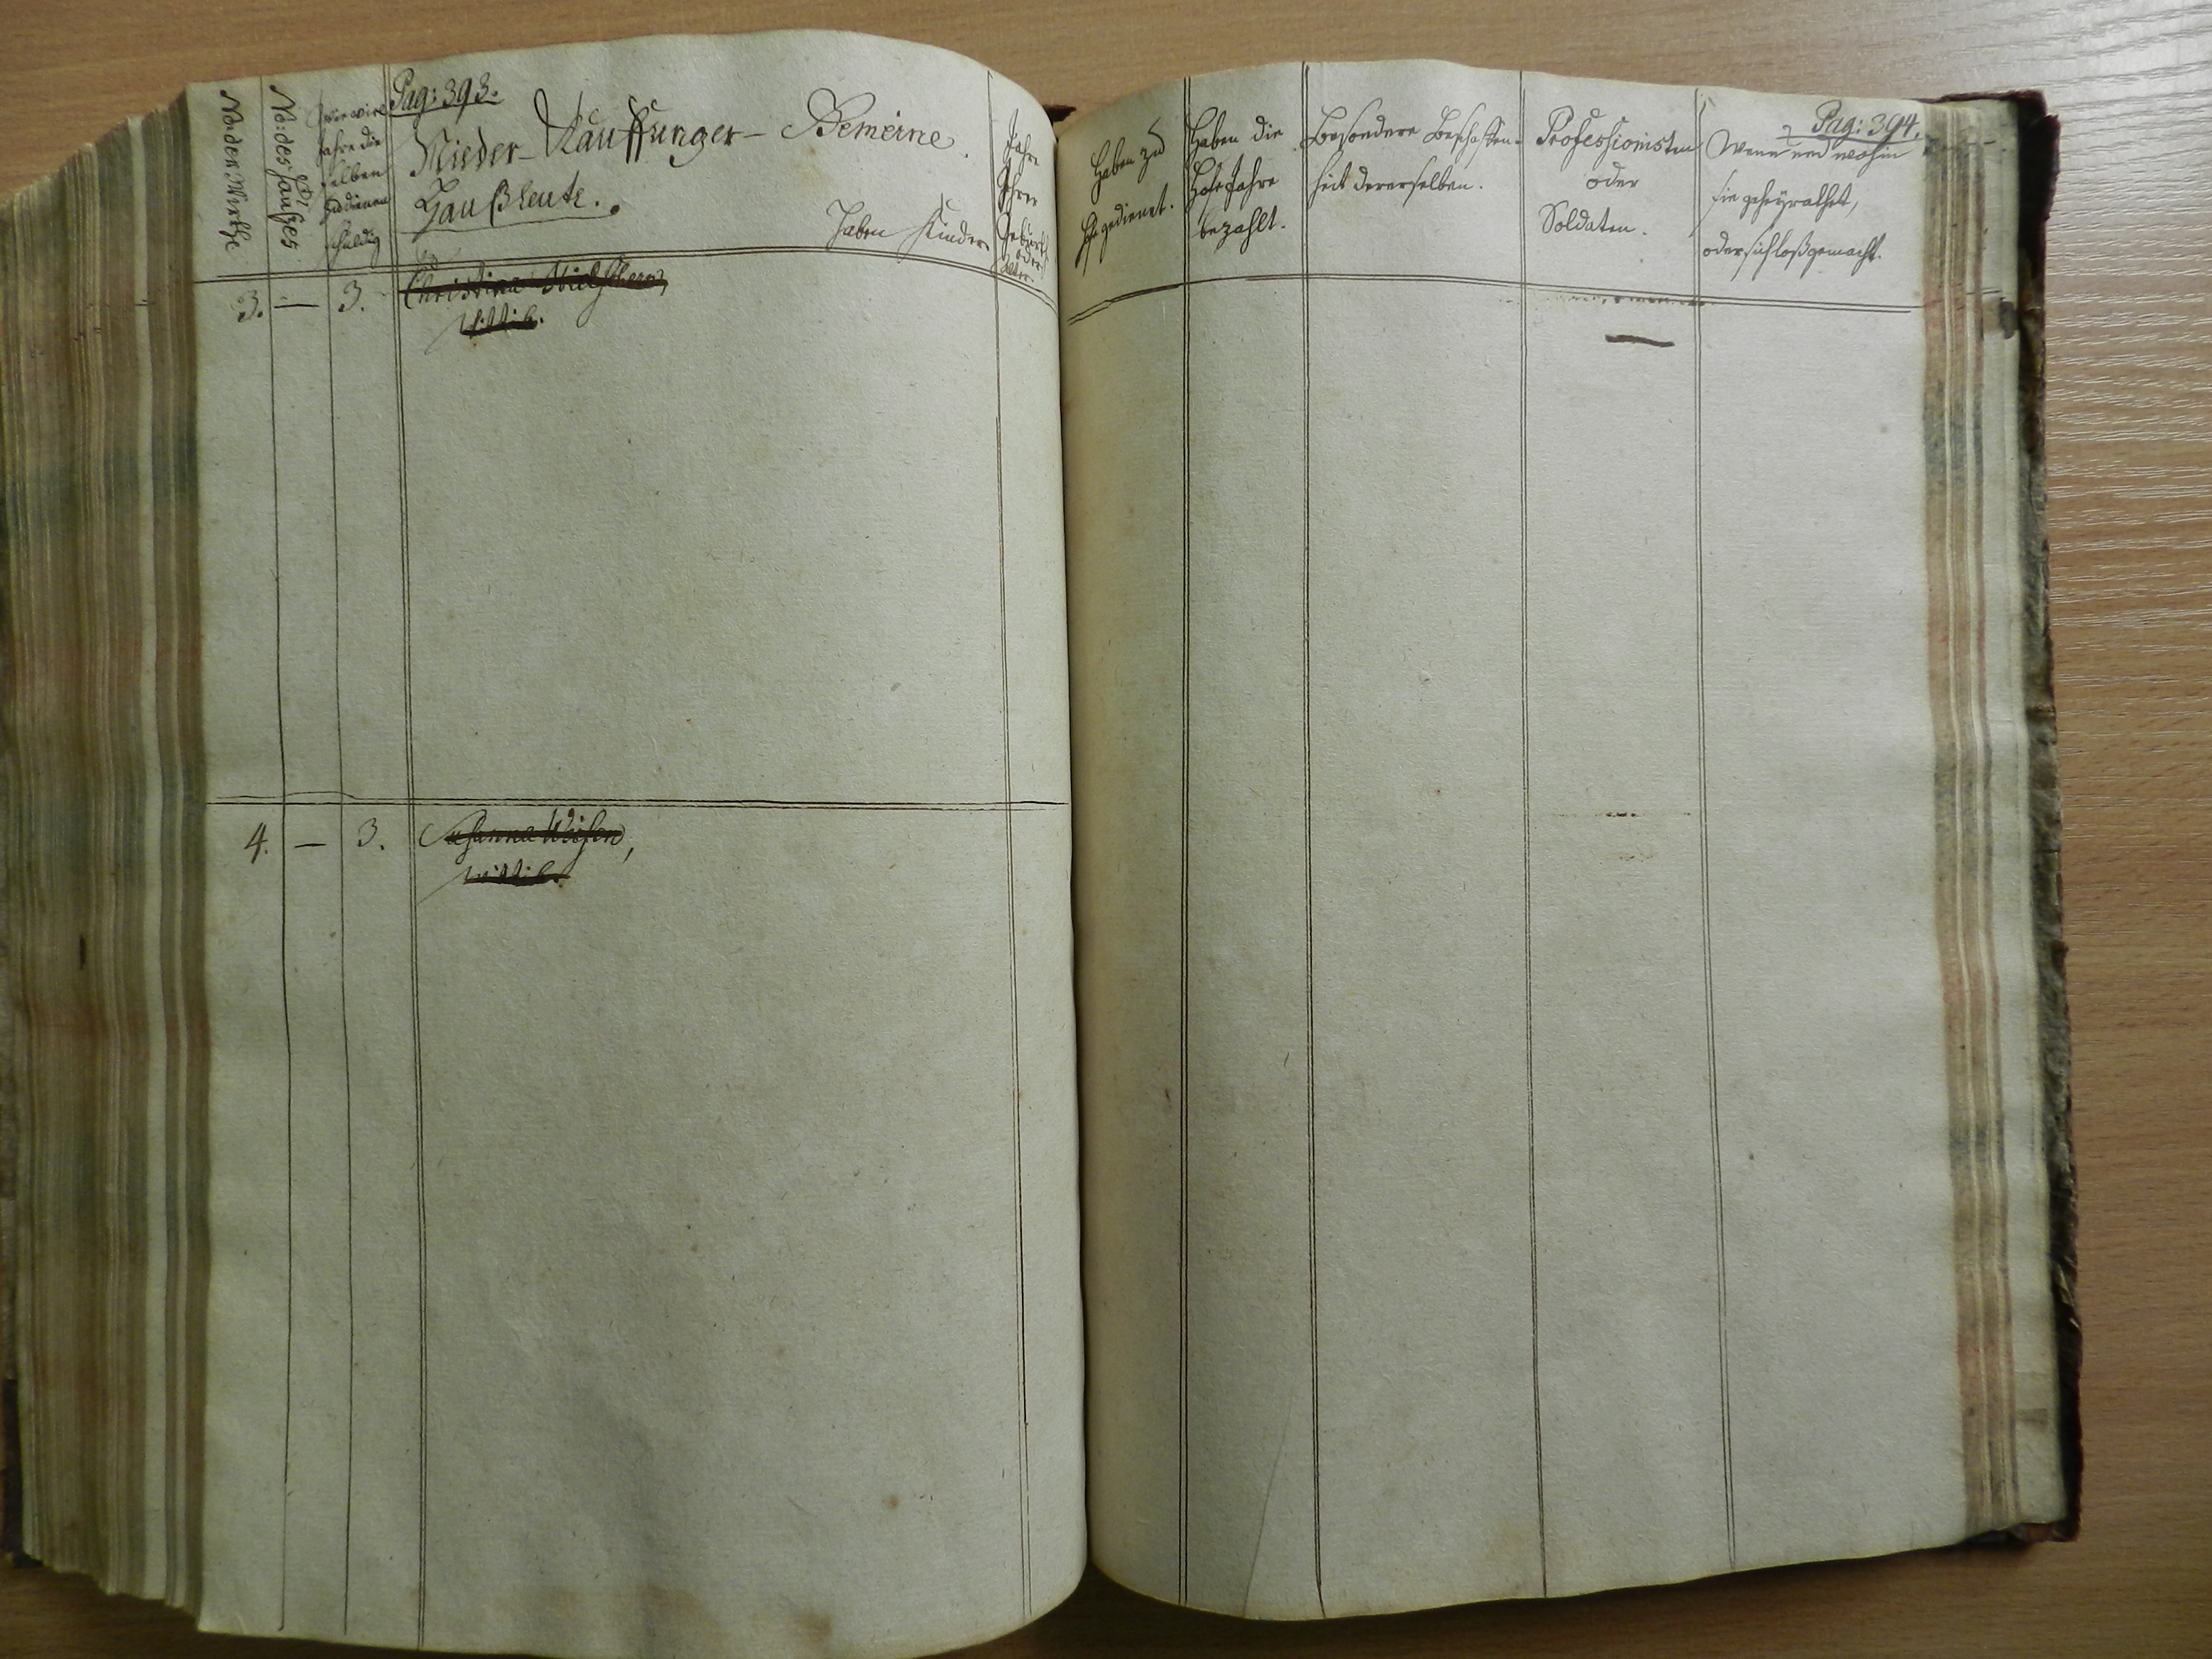 Pag: 393.
No: der Wirthe
No: des Haußes
Wie viel
Jahre die
selben
zu dienen
schuldig
Nieder-Kauffunger-Gemeine.
Haußleute.
Haben Kinder
Jahre
Ihrer
Geburth
oder
Alter.
3. — 3. Christina
Wittib.
4. — 3. Susanna
Wittib.
Pag: 394.
Haben zu
Hofe gedienet.
Haben die
Hofe Jahre
bezahlt.
Besondere Beschaffen-
heit dererselben.
Professionisten
oder
Soldaten.
Wenn und wohin
sie geheyrathet,
oder sich loßgemacht.